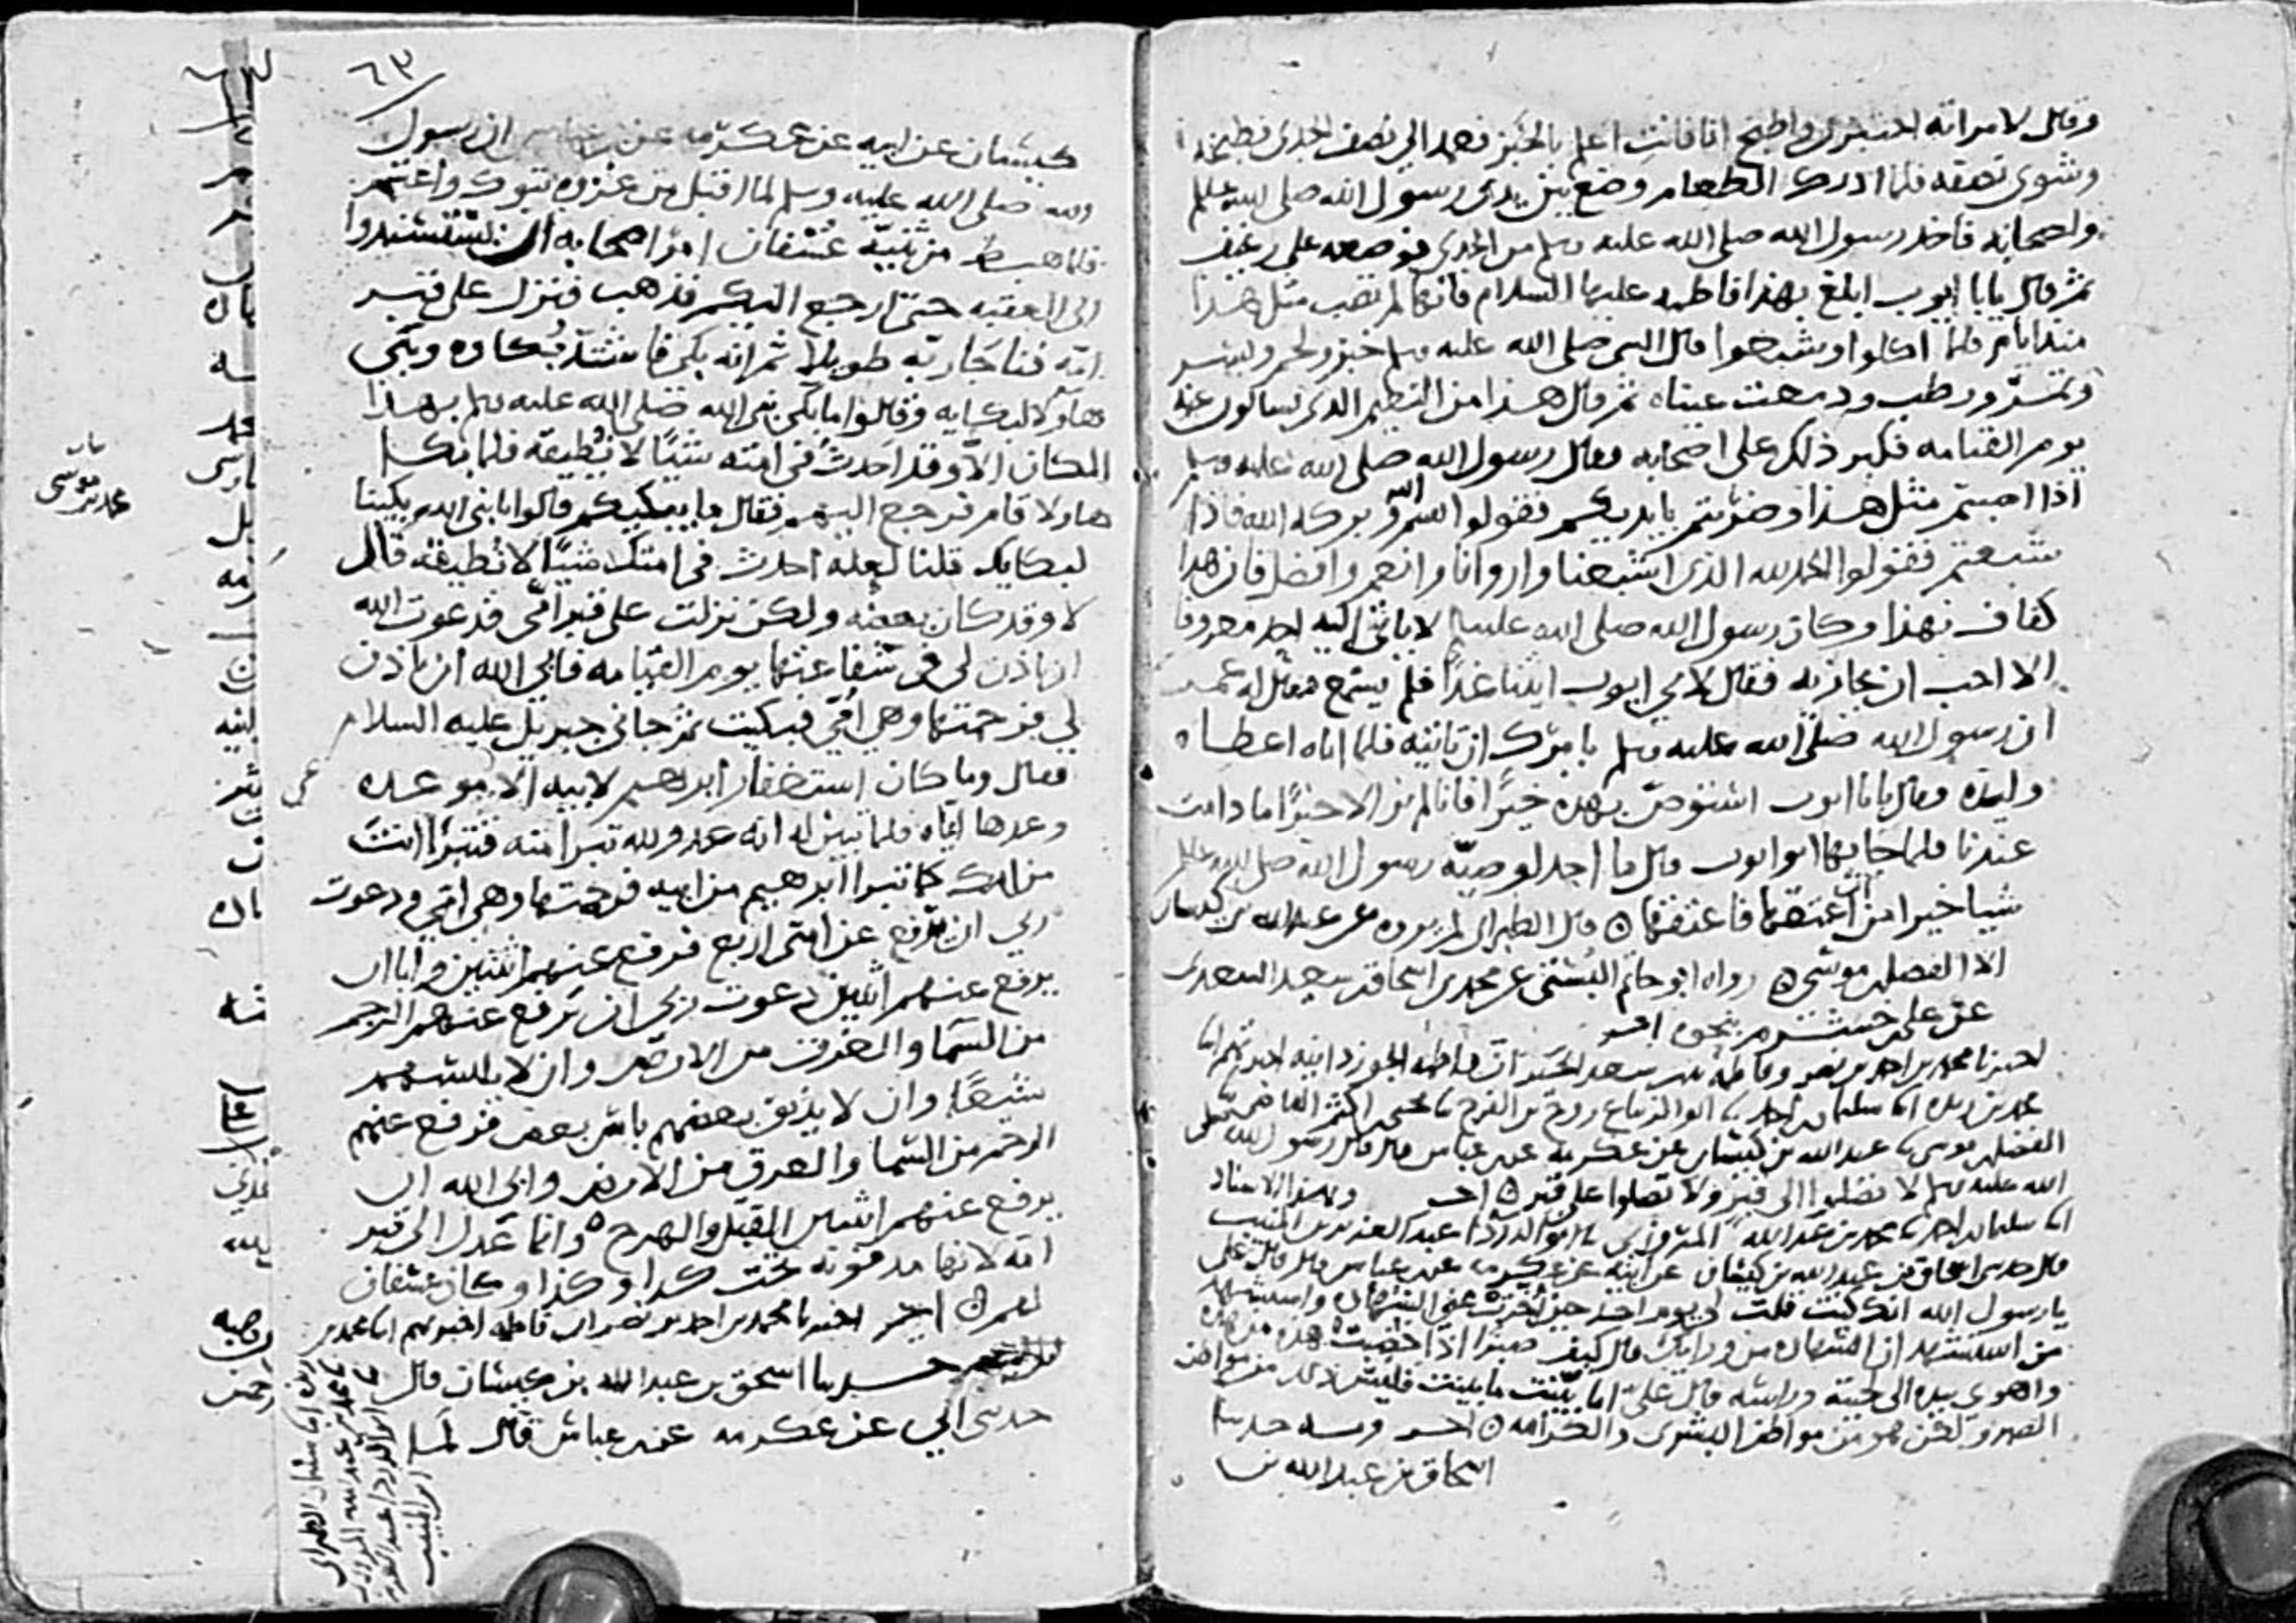 وقال لامراته اختبزى واطبخ انا فانت اعلم بالخبز فعمد الى نصف الجدى فطبخه
وشوى نصفه فلما ادرك الطعام وضع بين يدى رسول الله صلى الله عليه وسلم
واصحابه فاخذ رسول الله صلى الله عليه وسلم من الجدى فوضعه على رغيف
ثم قال يابا ايوب ابلغ بهذا فاطمه عليها السلام فانها لم تصب مثل هذا
منذ ايام فلما اكلوا وشبعوا قال النبى صلى الله عليه وسلم خبز ولحم وبسر
وتمر ورطب ودمعت عيناه ثم قال هذا من النعيم الذى تسالون عنه
يوم القيامه فكبر ذلك على اصحابه فقال رسول الله صلى الله عليه وسلم
اذا اصبتم مثل هذا وضربتم بايديكم فقولوا بسم الله وبركه الله فاذا
شبعتم فقولوا الحمد لله الذى اشبعنا واروانا وانعم وافضل فان هذا
كفاف بهذا وكان رسول الله صلى الله عليه وسلم لا ياتى اليه احد معروفا
الا احب ان يجازيه فقال لابى ايوب ايتنا غدا فلم يسمع فقال له عمر
ان رسول الله صلى الله عليه وسلم يامرك ان تاتيه فلما اتاه اعطاه
وليده فقال يابا ايوب استوص بهذه خيرا فانا لم نر الا خيرا ما دامت
عندنا فلما جا بها ابو ايوب قال ما اجد لوصيه رسول الله صلى الله عليه وسلم
شيا خيرا من ان اعتقها فاعتقها ٥ قال الطبرانى لم يروه عن عبد الله بن كيسان
الا الفضل بن موسى ٥ رواه ابو حاتم البستى عن محمد بن اسحاق بن سعيد السعدى
عن على بن خشرم بنحوه اخر
اخبرنا محمد بن احمد بن نصر وفاطمه بنت سعد الخير ان فاطمه الجوزدانيه اخبرتهم ابنا
محمد بن ريذه ابنا سليمان بن احمد ثنا ابو الزنباع روح بن الفرج ثنا يحيى بن اكثم القاضى ثنا
الفضل بن موسى ثنا عبد الله بن كيسان عن عكرمه عن ابن عباس قال قال رسول الله صلى
الله عليه وسلم لا تصلوا الى قبر ولا تصلوا على قبر ٥ اخر وبهذا الاسناد
ابنا سليمان بن احمد ثنا محمد بن عبد الله المروزى ثنا ابو الدردا عبد العزيز بن المنيب
قال حدثنى اسحاق بن عبد الله بن كيسان عن ابيه عن عكرمه عن ابن عباس قال قال على
يا رسول الله انك كنت قلت لى يوم احد حين اخرت عنى الشهاده واستشهد
من استشهد ان الشهاده من ورايك قال كيف صبرك اذا خضبت هذه من هذه
واهوى بيده الى لحيته وراسه قال على اما بينت ما بينت فليس ذلك من مواطن
الصبر ولكن هو من مواطن البشرى والكرامه ٥ اخر وبه حدثنا
اسحاق بن عبد الله بن
٦٣
كيسان عن ابيه عن عكرمه عن ابن عباس ان رسول
الله صلى الله عليه وسلم لما اقبل من غزوه تبوك واعتمر
فلما هبط من ثنيه عسفان امر اصحابه ان يستسندوا
الى العقبه حتى ارجع اليكم فذهب فنزل على قبر
امه فناجا ربه طويلا ثم انه بكى فاشتد بكاوه وبكى
هاولا لبكايه وقالوا ما بكى نبى الله صلى الله عليه وسلم بهذا
المكان الا وقد احدث فى امته شيا لا تطيقه فلما بكا
هاولا قام فرجع اليهم فقال ما يبكيكم قالوا يا نبى الله بكينا
لبكايك قلنا لعله احدث فى امتك شيا لا تطيقه قال
لا وقد كان بعضه ولكن نزلت على قبر امى فدعوت الله
ان ياذن لى فى شفاعتها يوم القيامه فابى الله ان ياذن
لى فرحمتها وهى امى فبكيت ثم جانى جبريل عليه السلام
فقال وما كان استغفار ابرهيم لابيه الا عن موعده
وعدها اياه فلما تبين له انه عدو لله تبرا منه فتبرا انت
من امك كما تبرا ابرهيم من ابيه فرحمتها وهى امى ودعوت
ربى ان يرفع عن امتى اربع فرفع عنهم اثنتين وابا ان
يرفع عنهم اثنتين دعوت ربى ان يرفع عنهم الرجم
من السما والغرق من الارض وان لا يلبسهم
شيعا وان لا يذيق بعضهم باس بعض فرفع عنهم
الرجم من السما والغرق من الارض وابى الله ان
يرفع عنهم اثنتين القتل والهرج ٥ وانما عدل الى قبر
امه لانها مدفونه تحت كدا وكذا وكان عسفان
لهم ٥ اخر اخبرنا محمد بن احمد بن نصر ان فاطمه اخبرتهم ابنا محمد بن
حدثنا اسحق بن عبد الله بن كيسان قال
حدثنى ابى عن عكرمه عن ابن عباس قال لما
ريذه ابنا سليمان الطبرانى
ثنا محمد بن عبد الله المروزى
ثنا ابو الدردا عبد العزيز
ابن المنيب
محمد بن موسى